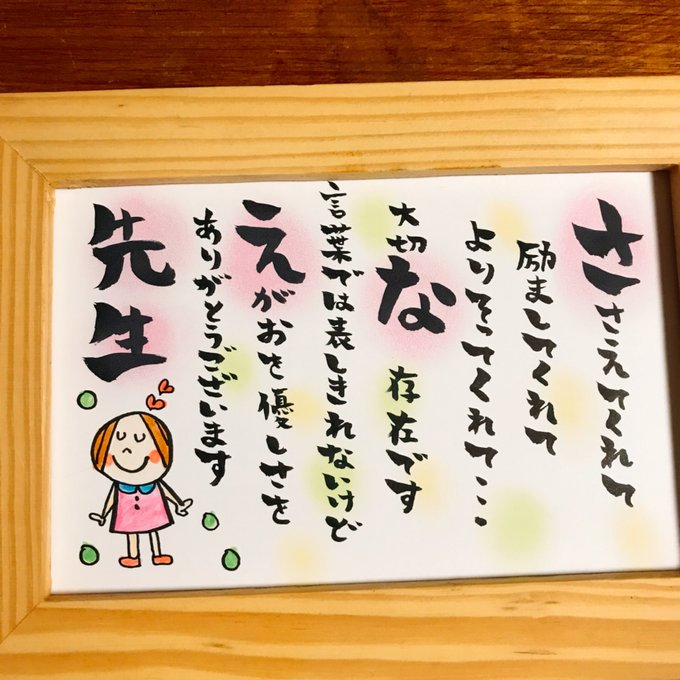 ささえてくれて
励ましてくれて
よりそってくれて…
大切な存在です
言葉では表しきれないけど
えがおを優しさを
ありがとうございます
先生